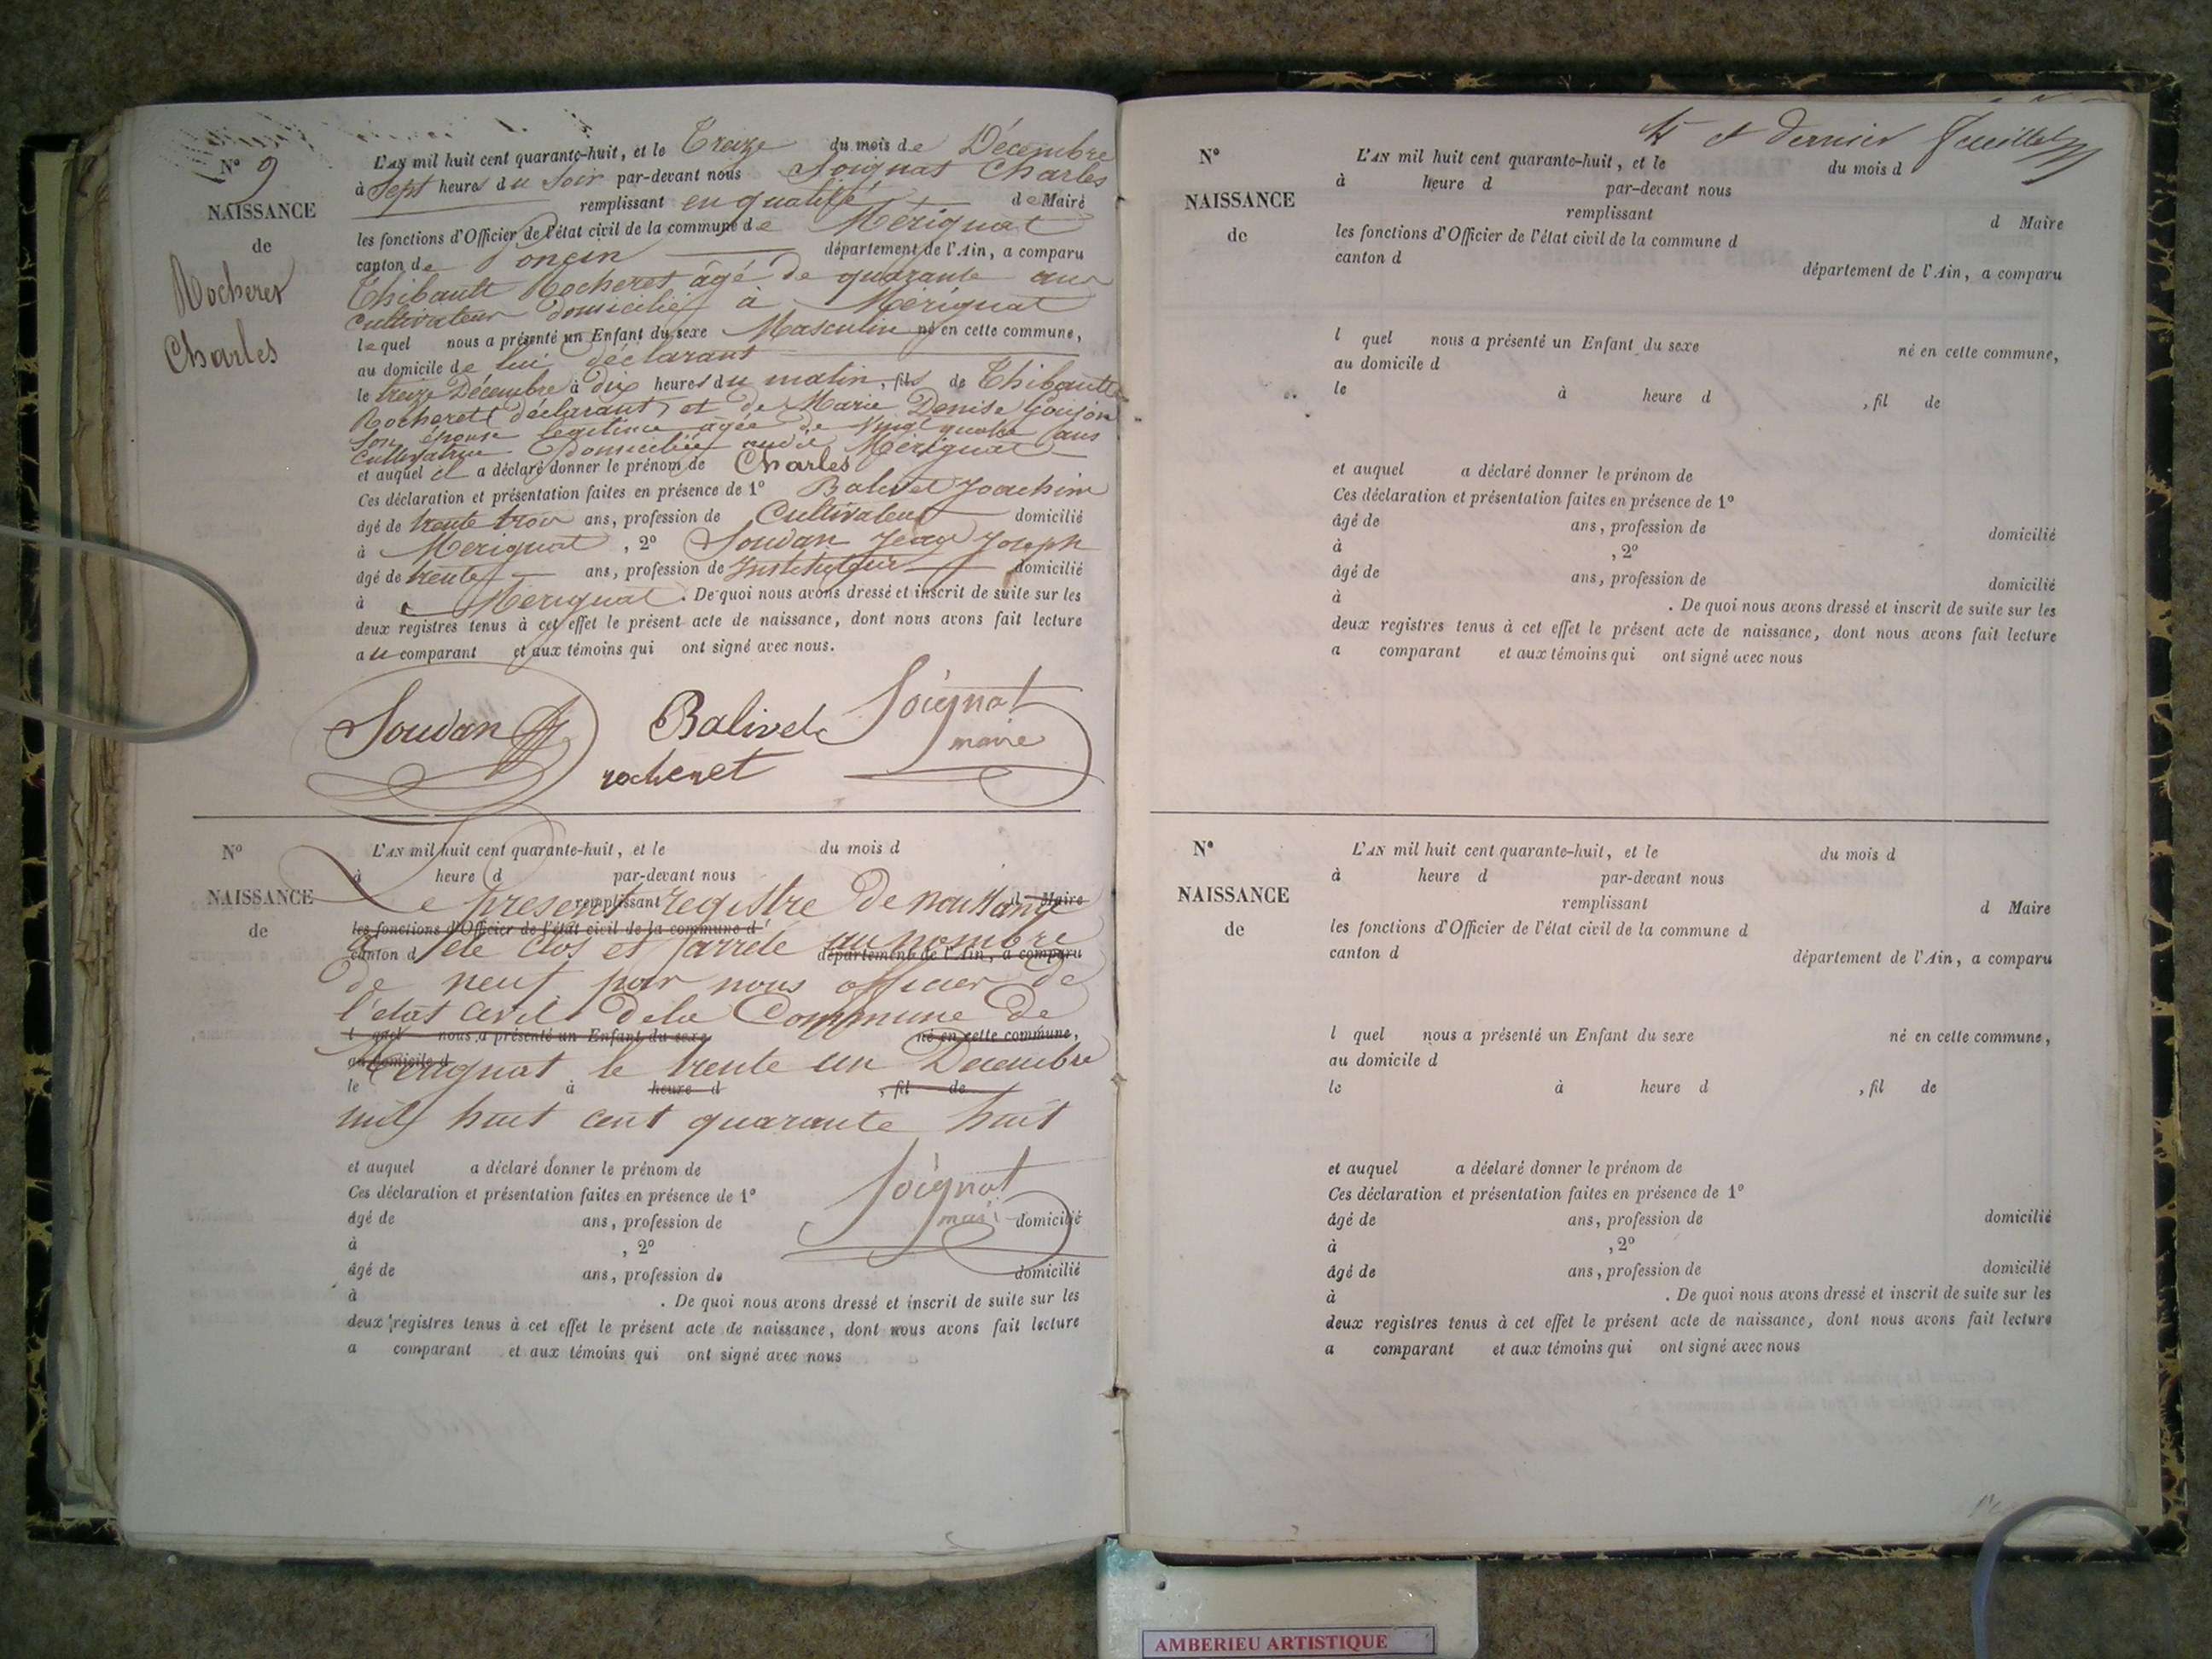 N° 9
NAISSANCE
de
Rocheret
Charles
L'AN mil huit cent quarante-huit, et le Treize du mois de Décembre
à Sept heures du Soir par-devant nous Soignat Charles
remplissant en qualité de Maire
les fonctions d'Officier de l'état civil de la commune de Mérignat
canton de Poncin département de l'Ain, a comparu
Thibault Rocheret âgé de quarante ans
Cultivateur domicilié à Mérignat
lequel nous a présenté un Enfant du sexe Masculin né en cette commune,
au domicile de lui déclarant
le treize Décembre à dix heures du matin, fils de Thibault
Rocheret déclarant, et de Marie Denise Goujon
son épouse légitime agée de Vingt quatre ans
Cultivatrice domiciliée audit Mérignat
et auquel il a déclaré donner le prénom de Charles
Ces déclaration et présentation faites en présence de 1° Balivet Joachim
âgé de trente trois ans, profession de Cultivateur domicilié
à Merignat, 2° Soudan Jean Joseph
âgé de trente ans, profession de Instituteur domicilié
à Merignat. De quoi nous avons dressé et inscrit de suite sur les
deux registres tenus à cet effet le présent acte de naissance, dont nous avons fait lecture
au comparant et aux témoins qui ont signé avec nous.
Soudan Balivet Soignat
maire
rocheret
N°
NAISSANCE
de
L'AN mil huit cent quarante-huit, et le du mois d
à heure d par-devant nous
remplissant d Maire
Le present registre de naissance
les fonctions d'Officier de l'état civil de la commune d
a été clos et arrêté au nombre
canton d département de l'Ain, a comparu
de neuf par nous officier de
l'etat civil de la Commune de
l quel nous a présenté un Enfant du sexe né en cette commune,
au domicile d
Merignat le trente un Decembre
le à heure d , fil de
mil huit cent quarante huit
et auquel a déclaré donner le prénom de
Soignat
Ces déclaration et présentation faites en présence de 1°
maire
âgé de ans, profession de domicilié
à , 2°
âgé de ans, profession de domicilié
à . De quoi nous avons dressé et inscrit de suite sur les
deux registres tenus à cet effet le présent acte de naissance, dont nous avons fait lecture
a comparant et aux témoins qui ont signé avec nous
et dernier feuillet
N°
NAISSANCE
de
L'AN mil huit cent quarante-huit, et le du mois d
à heure d par-devant nous
remplissant d Maire
les fonctions d'Officier de l'état civil de la commune d
canton d département de l'Ain, a comparu
l quel nous a présenté un Enfant du sexe né en cette commune,
au domicile d
le à heure d , fil de
et auquel a déclaré donner le prénom de
Ces déclaration et présentation faites en présence de 1°
âgé de ans, profession de domicilié
à , 2°
âgé de ans, profession de domicilié
à . De quoi nous avons dressé et inscrit de suite sur les
deux registres tenus à cet effet le présent acte de naissance, dont nous avons fait lecture
a comparant et aux témoins qui ont signé avec nous
N°
NAISSANCE
de
L'AN mil huit cent quarante-huit, et le du mois d
à heure d par-devant nous
remplissant d Maire
les fonctions d'Officier de l'état civil de la commune d
canton d département de l'Ain, a comparu
l quel nous a présenté un Enfant du sexe né en cette commune,
au domicile d
le à heure d , fil de
et auquel a déclaré donner le prénom de
Ces déclaration et présentation faites en présence de 1°
âgé de ans, profession de domicilié
à , 2°
âgé de ans, profession de domicilié
à . De quoi nous avons dressé et inscrit de suite sur les
deux registres tenus à cet effet le présent acte de naissance, dont nous avons fait lecture
a comparant et aux témoins qui ont signé avec nous
AMBERIEU ARTISTIQUE